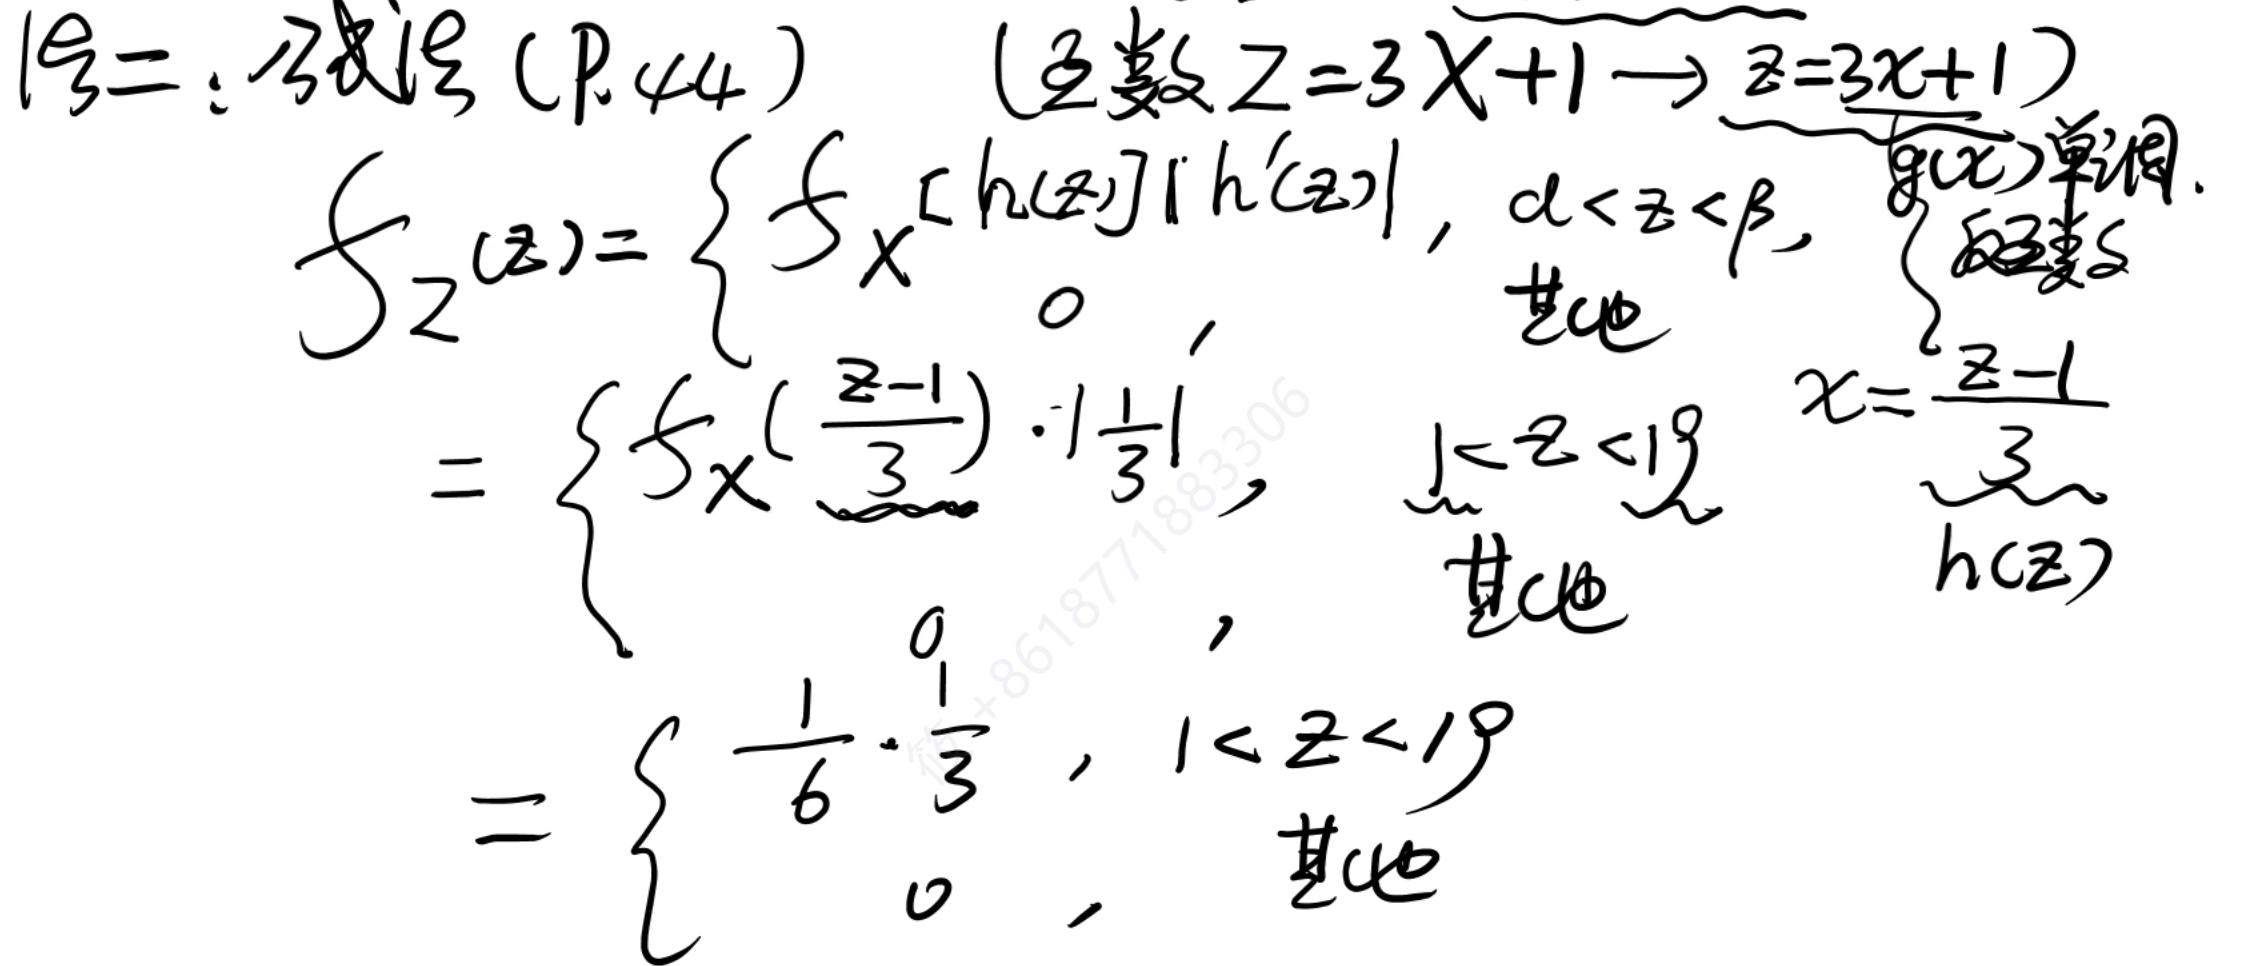 法二:公式法(P.44) (函数Z=3X+1→z=3x+1)
g(x)单调.
的函数
f_Z(z)={f_X[h(z)]|h'(z)|, α<z<β,
0, 其他
x=\frac{z-1}{3}
h(z)
={f_X(\frac{z-1}{3})·|\frac{1}{3}|, 1<z<19
0, 其他
={\frac{1}{6}·\frac{1}{3}, 1<z<19
0, 其他
+8618771883306